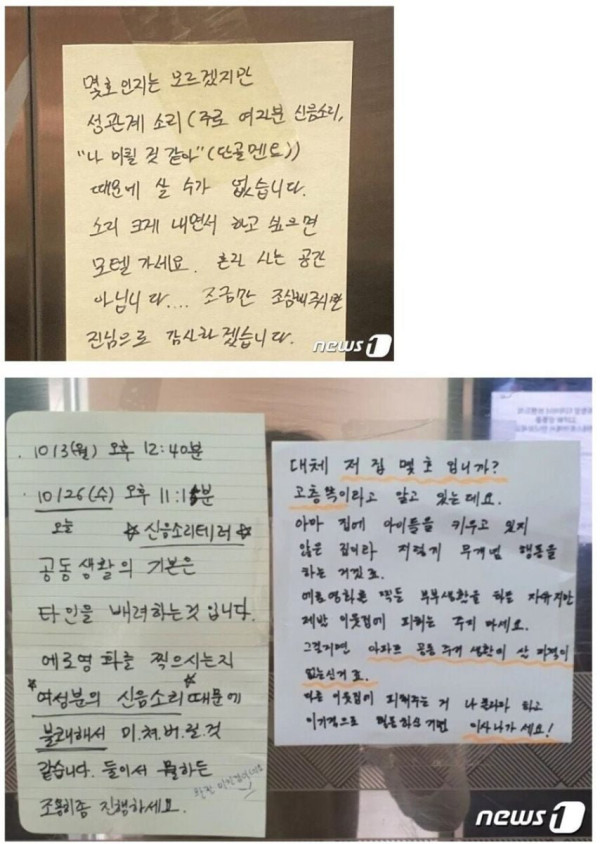 몇호인지는 모르겠지만
성관계 소리 (주로 여자분 신음소리,
"나 미칠 것 같아" (단골멘트))
때문에 살 수가 없습니다.
소리 크게 내면서 하고 싶으면
모텔 가세요. 혼자 사는 공간
아닙니다.... 조금만 조심해주시면
진심으로 감사하겠습니다.
news1
10/3(월) 오후 12:40분
10/26(수) 오후 11:15분
오늘 ☆신음소리테러☆
공동생활의 기본은
타인을 배려하는것 입니다.
에로영화를 찍으시는지
*여성분의 신음소리*때문에
불쾌해서 미.쳐.버.릴.것
같습니다. 둘이서 뭘하든
조용히좀 진행하세요.
대체 저 집 몇호 입니까?
고층쪽이라고 알고 있는데요.
아마 집에 아이들을 키우고 있지
않은 집이라 저렇게 무개념 행동을
하는 거겠죠.
에로영화를 찍든 부부생활을 하든 자유지만
제발 이웃집에 피해는 주지 마세요.
그럴거면 아파트 공동 주거 생활에 살 자격이
없는신거죠.
다른 이웃집에 피해주는 거 나 몰라라 하고
이기적으로 행동하실거면 이사나가세요!
news1